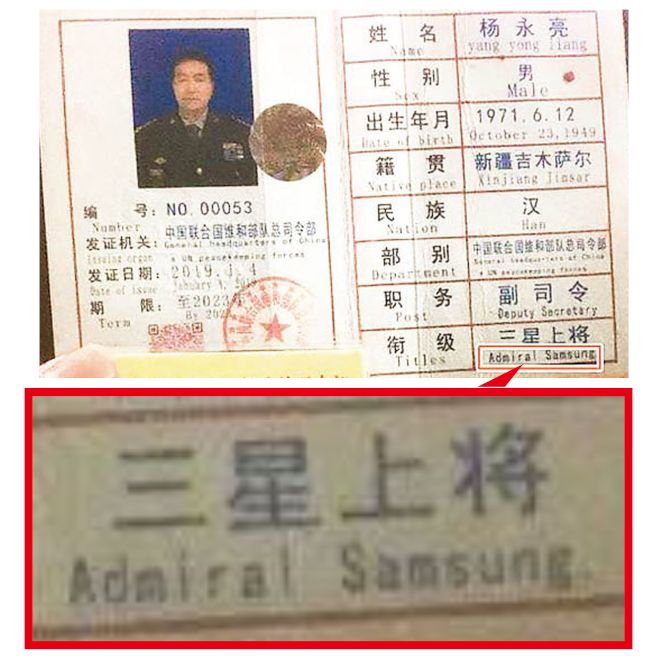 姓 名 杨 永 亮
Name yang yong liang
性 别 男
Sex Male
出生年月 1971.6.12
Date of birth October 23,1949
籍 贯 新疆吉木萨尔
Native place Xinjiang Jimsar
民 族 汉
Nation Han
部 别 中国联合国维和部队总司令部
Department General headquarters of China
s UN peacekeeping forces
职 务 副司令
Post Deputy Secretary
衔 级 三星上将
Titles Admiral Samsung
编 号: NO.00053
Number
发证机关: 中国联合国维和部队总司令部
Issuing organ General headquarters of China
s UN peacekeeping forces
发证日期: 2019.4.4
Date of issue January
期 限: 至2023
Term By 202
三星上将
Admiral Samsung.